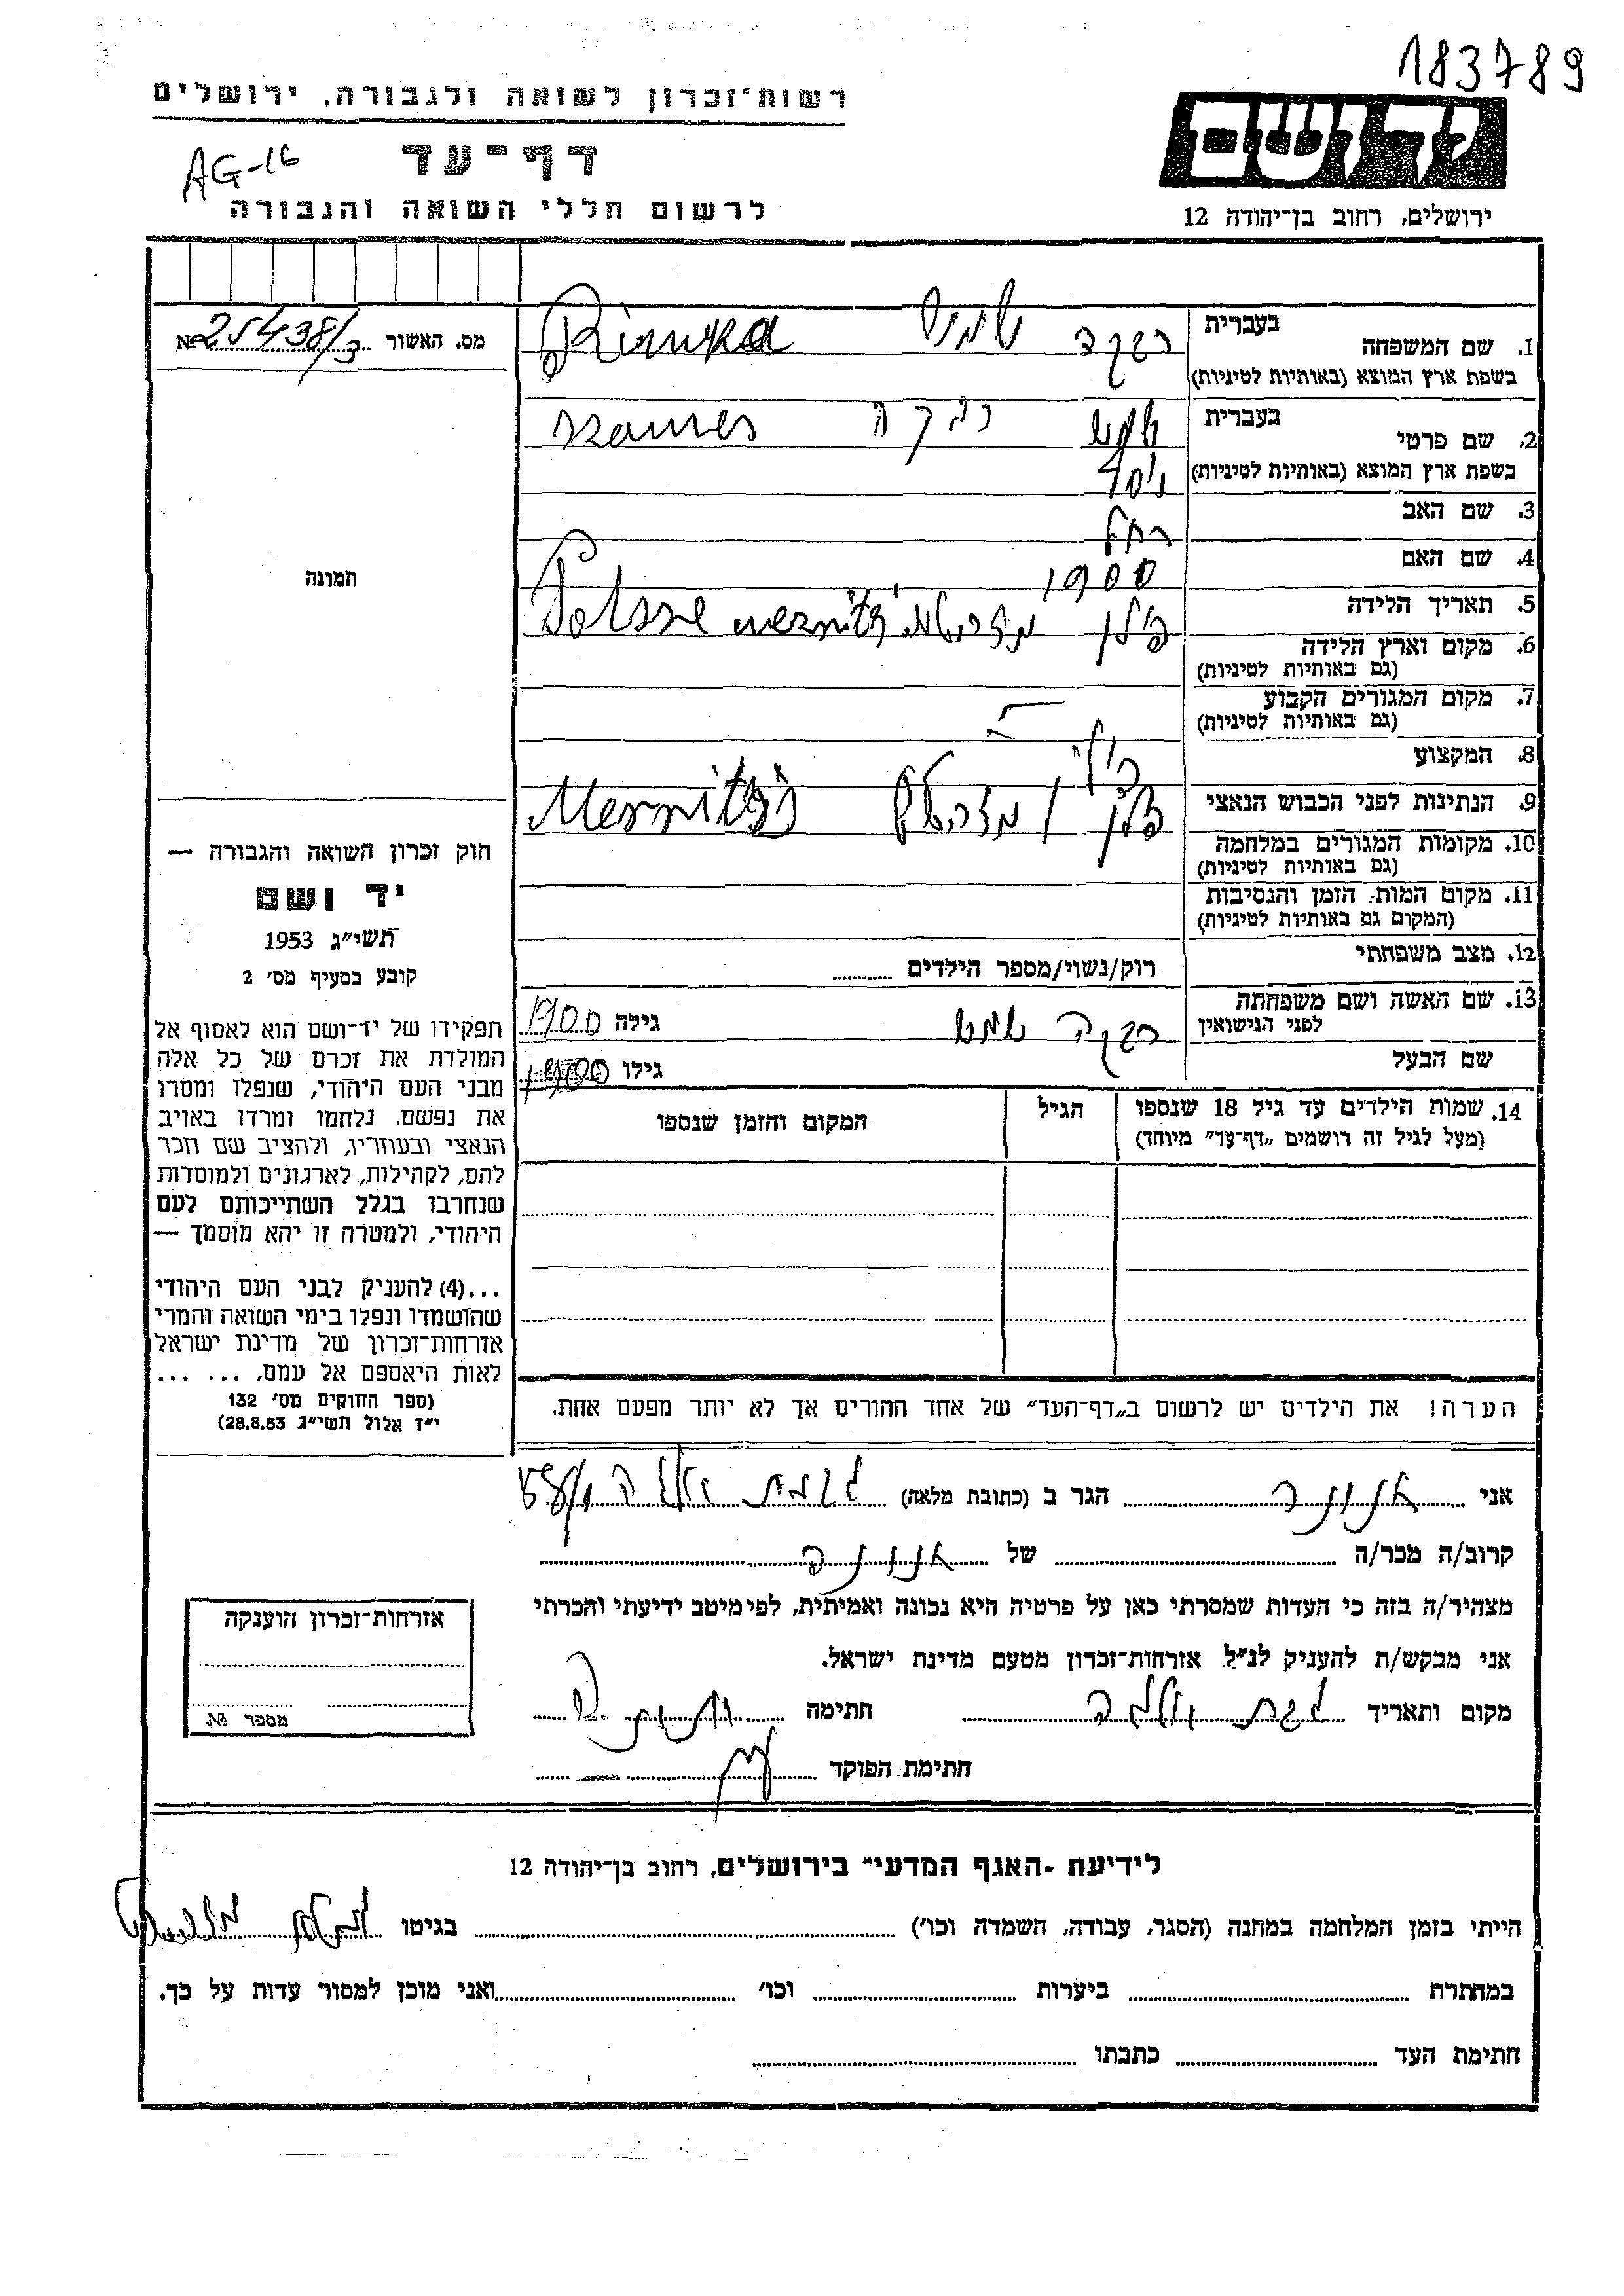 183789
רשות־זכרון לשואה ולגבורה, ירושלים
דף־עד
AG-16
לרשום חללי השואה והגבורה
ידושם
ירושלים, רחוב בן־יהודה 12
מס. האשור №25438/3
בעברית
1. שם המשפחה
בשפת ארץ המוצא (באותיות לטיניות)
רבקה שמש Riwka
בעברית
2. שם פרטי
בשפת ארץ המוצא (באותיות לטיניות)
שמש רבקה szames
3. שם האב
4. שם האם
רחל
5. תאריך הלידה
1900
6. מקום וארץ הלידה
(גם באותיות לטיניות)
פולין
7. מקום המגורים הקבוע
(גם באותיות לטיניות)
8. המקצוע
9. הנתינות לפני הכבוש הנאצי
10. מקומות המגורים במלחמה
(גם באותיות לטיניות)
11. מקום המות, הזמן והנסיבות
(המקום גם באותיות לטיניות)
12. מצב משפחתי
רוק/נשוי/מספר הילדים
13. שם האשה ושם משפחתה
לפני הנישואין
רבקה שמש גילה 1900
שם הבעל
גילו 1900
14. שמות הילדים עד גיל 18 שנספו
(מעל לגיל זה רושמים „דף־עד” מיוחד)
הגיל
המקום והזמן שנספו
הערה! את הילדים יש לרשום ב„דף־העד” של אחד ההורים אך לא יותר מפעם אחת.
תמונה
חוק זכרון השואה והגבורה —
יד ושם
תשי״ג 1953
קובע בסעיף מס׳ 2
תפקידו של יד־ושם הוא לאסוף אל
המולדת את זכרם של כל אלה
מבני העם היהודי, שנפלו ומסרו
את נפשם, נלחמו ומרדו באויב
הנאצי ובעוזריו, ולהציב שם וזכר
להם, לקהילות, לארגונים ולמוסדות
שנחרבו בגלל השתייכותם לעם
היהודי, ולמטרה זו יהא מוסמך —
...(4) להעניק לבני העם היהודי
שהושמדו ונפלו בימי השואה והמרי
אזרחות־זכרון של מדינת ישראל
לאות היאספם אל עמם, ... ...
(ספר החוקים מס׳ 132
י״ז אלול תשי״ג 28.8.53)
אני הגר ב (כתובת מלאה)
קרוב/ה מכר/ה של
מצהיר/ה בזה כי העדות שמסרתי כאן על פרטיה היא נכונה ואמיתית, לפי מיטב ידיעתי והכרתי
אני מבקש/ת להעניק לנ״ל אזרחות־זכרון מטעם מדינת ישראל.
מקום ותאריך חתימה
חתימת הפוקד
אזרחות־זכרון הוענקה
מספר №
לידיעת ־האגף המדעי־ בירושלים, רחוב בן־יהודה 12
הייתי בזמן המלחמה במחנה (הסגר, עבודה, השמדה וכו׳) בגיטו
במחתרת ביערות וכו׳ ואני מוכן למסור עדות על כך.
חתימת העד כתבתו